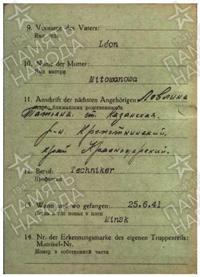 9. Vorname des Vaters:
Имя отца
Léon
10. Name der Mutter:
Имя матери
Witowanowa
11. Anschrift der nächsten Angehörigen
Павлина
ст. Казанская
р-н
край Краснодарский.
12. Beruf: Techniker
Профессия
13. Wann und wo gefangen: 25.6.41
Minsk
14. Nr. der Erkennungsmarke des eigenen Truppenteils:
Matrikel-Nr.
Номер в собственной части